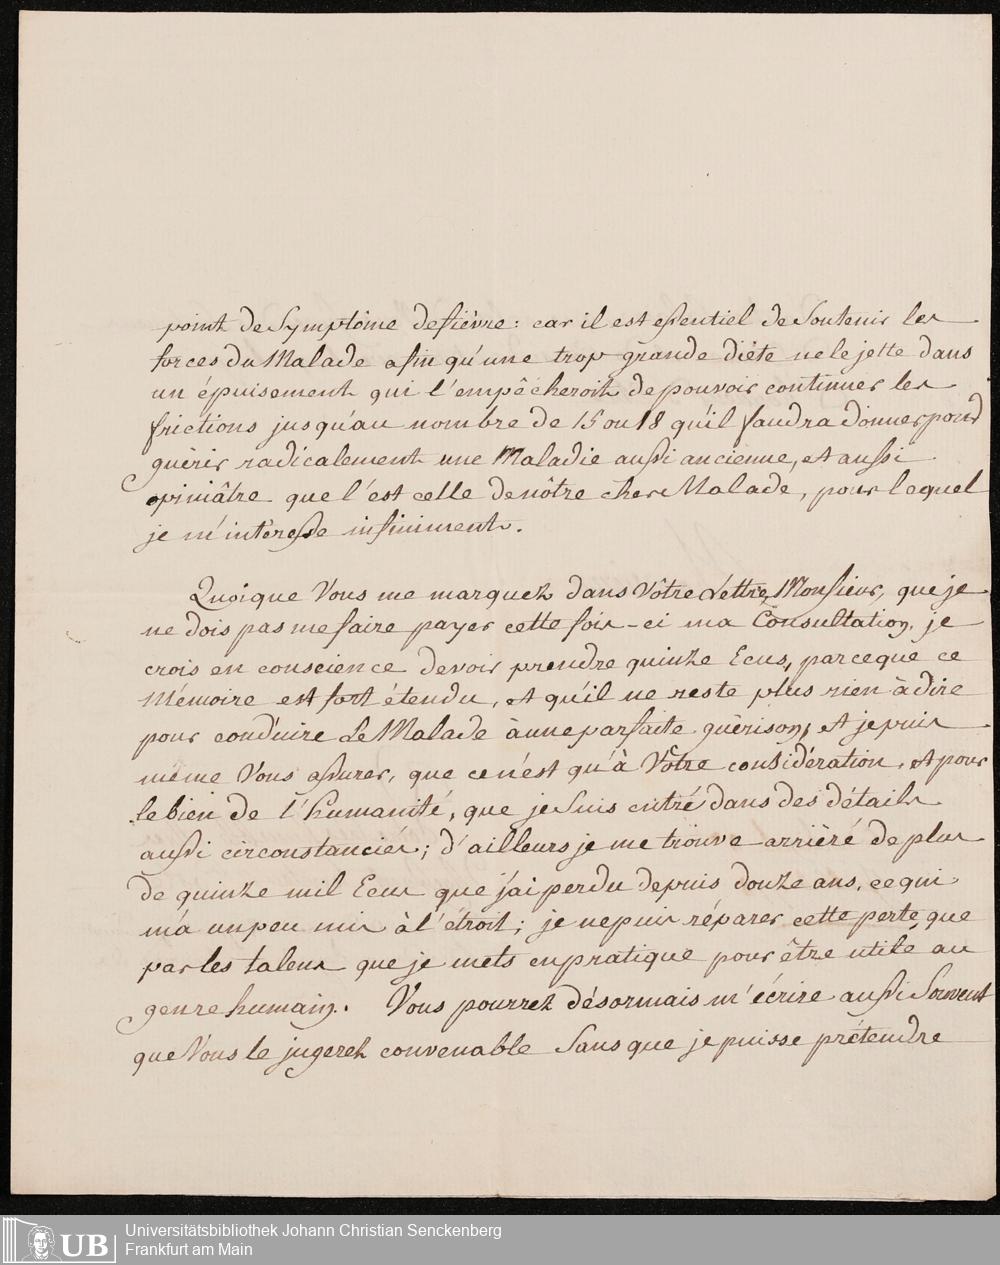 point de Symptôme de fiévre: car il est essentiel de Soutenir les
forces du Malade afin qu'une trop grande diéte ne le jette dans
un épuisement qui l'empêcheroit de pouvoir continuer les
frictions jusqu'au nombre de 15 ou 18 qu'il faudra donner pour
guérir radicalement une Maladie aussi ancienne, et aussi
opiniâtre que l'est celle de nôtre cher Malade, pour lequel
je m'interesse infiniment.
Quoique Vous me marquez dans Vôtre Lettre, Monsieur, que je
ne dois pas me faire payer cette fois-ci ma Consultation, je
crois en conscience devoir prendre quinze Ecus, parceque ce
Mémoire est fort étendu, et qu'il ne reste plus rien à dire
pour conduire Le Malade à une parfaite guérison, et je puis
même Vous assurer, que ce n'est qu'à Vôtre considération, et pour
le bien de l'humanité, que je suis entré dans des détails
aussi circonstanciés; d'ailleurs je me trouve arriéré de plus
de quinze mil Ecus que j'ai perdu depuis douze ans, ce qui
m'a un peu mis à l'étroit; je ne puis réparer cette perte, que
par les talens que je mets en pratique pour être utile au
genre humain. Vous pourrez désormais m'écrire aussi Souvent
que Vous le jugerez convenable Sans que je puisse prétendre
Universitätsbibliothek Johann Christian Senckenberg
Frankfurt am Main
UB